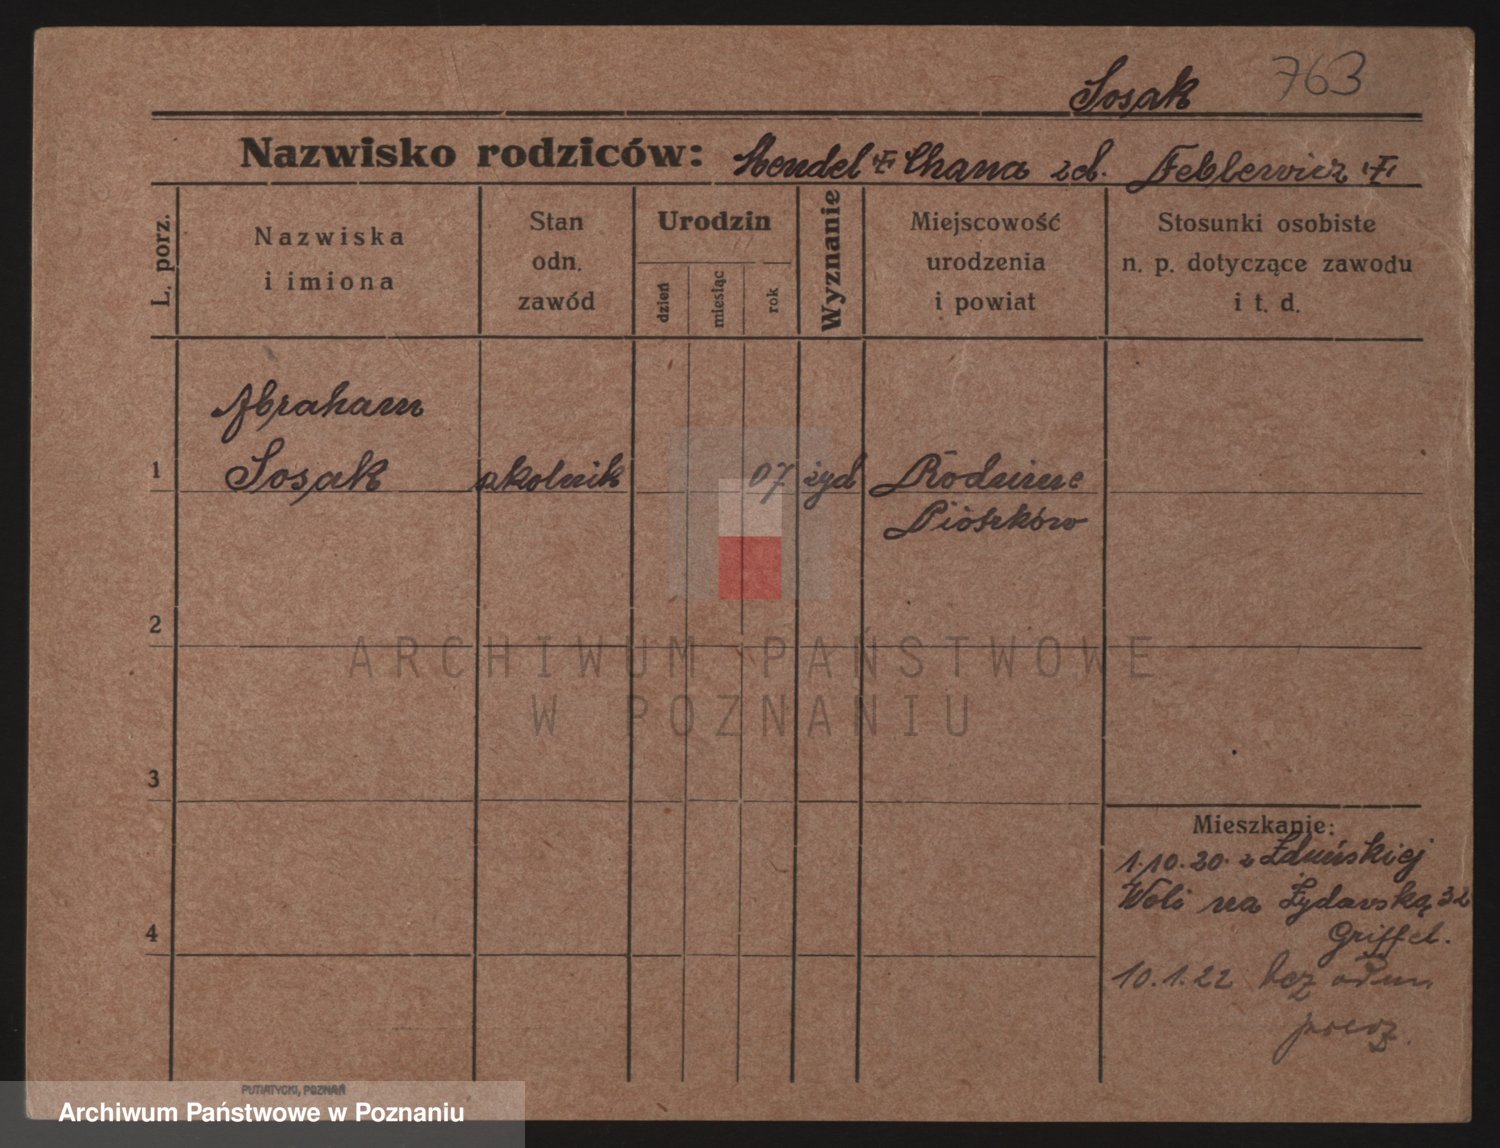 Sosak 763
Nazwisko rodziców: Mendel Chana zd.
L. porz.
Nazwiska
i imiona
Stan
odn.
zawód
Urodzin
dzień
miesiąc
rok
Wyznanie
Miejscowość
urodzenia
i powiat
Stosunki osobiste
n. p. dotyczące zawodu
i t. d.
Abraham
1 Sosak 07 żyd
Piotrków
2
3
4
Mieszkanie:
1.10.20. z Zduńskiej
Woli na Żydowską 32
Griffel.
10.1.22 bez
ARCHIWUM PAŃSTWOWE
W POZNANIU
PUTIATYCKI, POZNAŃ
Archiwum Państwowe w Poznaniu